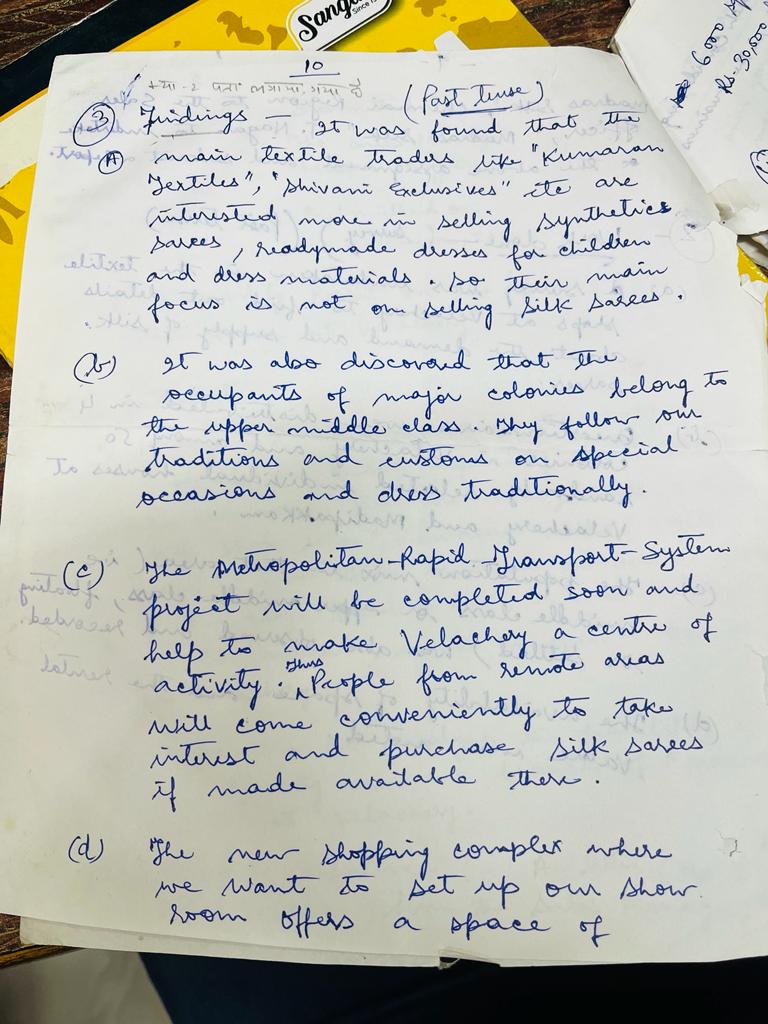 Sang
Since
6000
Rs. 30,000
10
क्या-2 पता लगाया गया है
(Past tense)
③ Findings — It was found that the
Ⓐ main textile traders like "Kumaran
Textiles", "Shivani Exclusives" etc are
interested more in selling synthetics
sarees, readymade dresses for children
and dress materials. So their main
focus is not on selling silk sarees.
(b) It was also discovered that the
occupants of major colonies belong to
the upper middle class. They follow our
traditions and customs on special
occasions and dress traditionally.
(c) The Metropolitan-Rapid-Transport-System
project will be completed soon and
help to make Velachery a centre of
activity. Thus People from remote areas
will come conveniently to take
interest and purchase silk sarees
if made available there.
(d) The new shopping complex where
we want to set up our show
room offers a space of